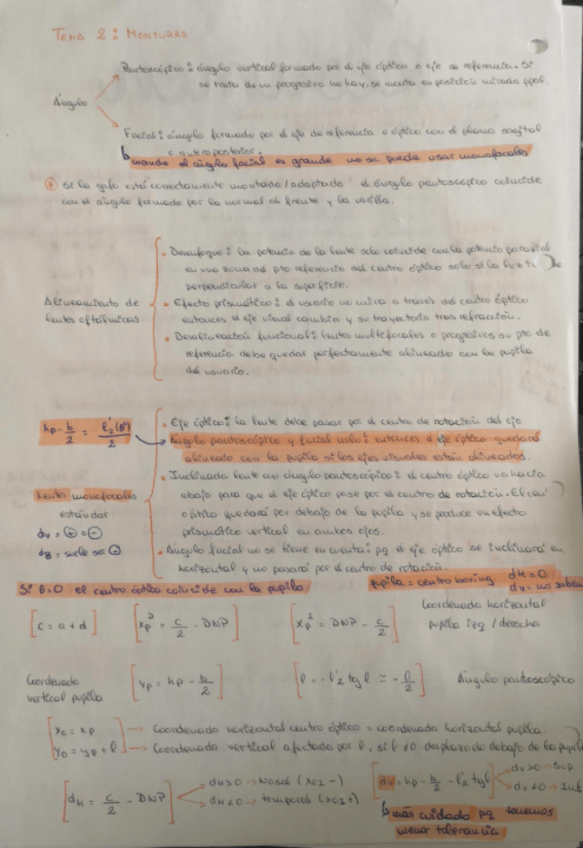 TEMA 2: MONTURAS
Pantoscópico: ángulo vertical formado por el eje óptico o eje de referencia. Si
se trata de un progresivo no hay, se monta en posición mirada ppal.
Ángulo
Facial: ángulo formado por el eje de referencia o óptico con el plano sagital
o anteroposterior.
cuando el ángulo facial es grande no se puede usar monofocales
Si la gafa está correctamente montada/adaptada el ángulo pantoscópico coincide
con el ángulo formado por la normal al frente y la varilla.
Desenfoque: la potencia de la lente solo coincide con la potencia paraxial
en una zona del pto referencia del centro óptico solo si la luz
perpendicular a la superficie.
Alineamiento de
lentes oftálmicas
Efecto prismático: el usuario no mira a través del centro óptico
entonces el eje visual cambia y su trayectoria tras refracción.
Desalineación funcional: lentes multifocales o progresivos su pto de
referencia debe quedar perfectamente alineado con la pupila
del usuario.
hp - b/2 = l'2(θ°)/2
Eje óptico: la lente debe pasar por el centro de rotación del ojo
Ángulo pantoscópico y facial nulo: entonces el eje óptico quedará
alineado con la pupila si los ejes visuales están alineados.
Lentes monofocales
estándar
dv = ⊕ o ⊖
Inclinada lente con ángulo pantoscópico: el centro óptico va hacia
abajo para que el eje óptico pase por el centro de rotación. El
óptico quedará por debajo de la pupila y se produce un efecto
prismático vertical en ambos ojos.
suele ser ⊖
Ángulo facial no se tiene en cuenta: pq el eje óptico se inclinará en
horizontal y no pasará por el centro de rotación.
Si θ=0 el centro óptico coincide con la pupila
pupila = centro boxing dH=0
dv = no
[c = a + d] [xp^D = c/2 - DNP] [xp^I = DNP - c/2] Coordenada horizontal
pupila izq / derecha
Coordenada
vertical pupila [yp = hp - b/2] [l = -l'2 tg l ≃ -l/2] Ángulo pantoscópico
[x0 = xp → Coordenada horizontal centro óptico = coordenada horizontal pupila.
y0 = yp + l] → Coordenada vertical afectada por l, si l<0 desplazado debajo de la pupila
[dH = c/2 - DNP] dH>0 → nasal (x01 -)
dH<0 → temporal (x01 +)
[dv = hp - b/2 - l'2 tg l] dv>0 → sup
dv<0 → inf
más cuidado pq tenemos
menor tolerancia